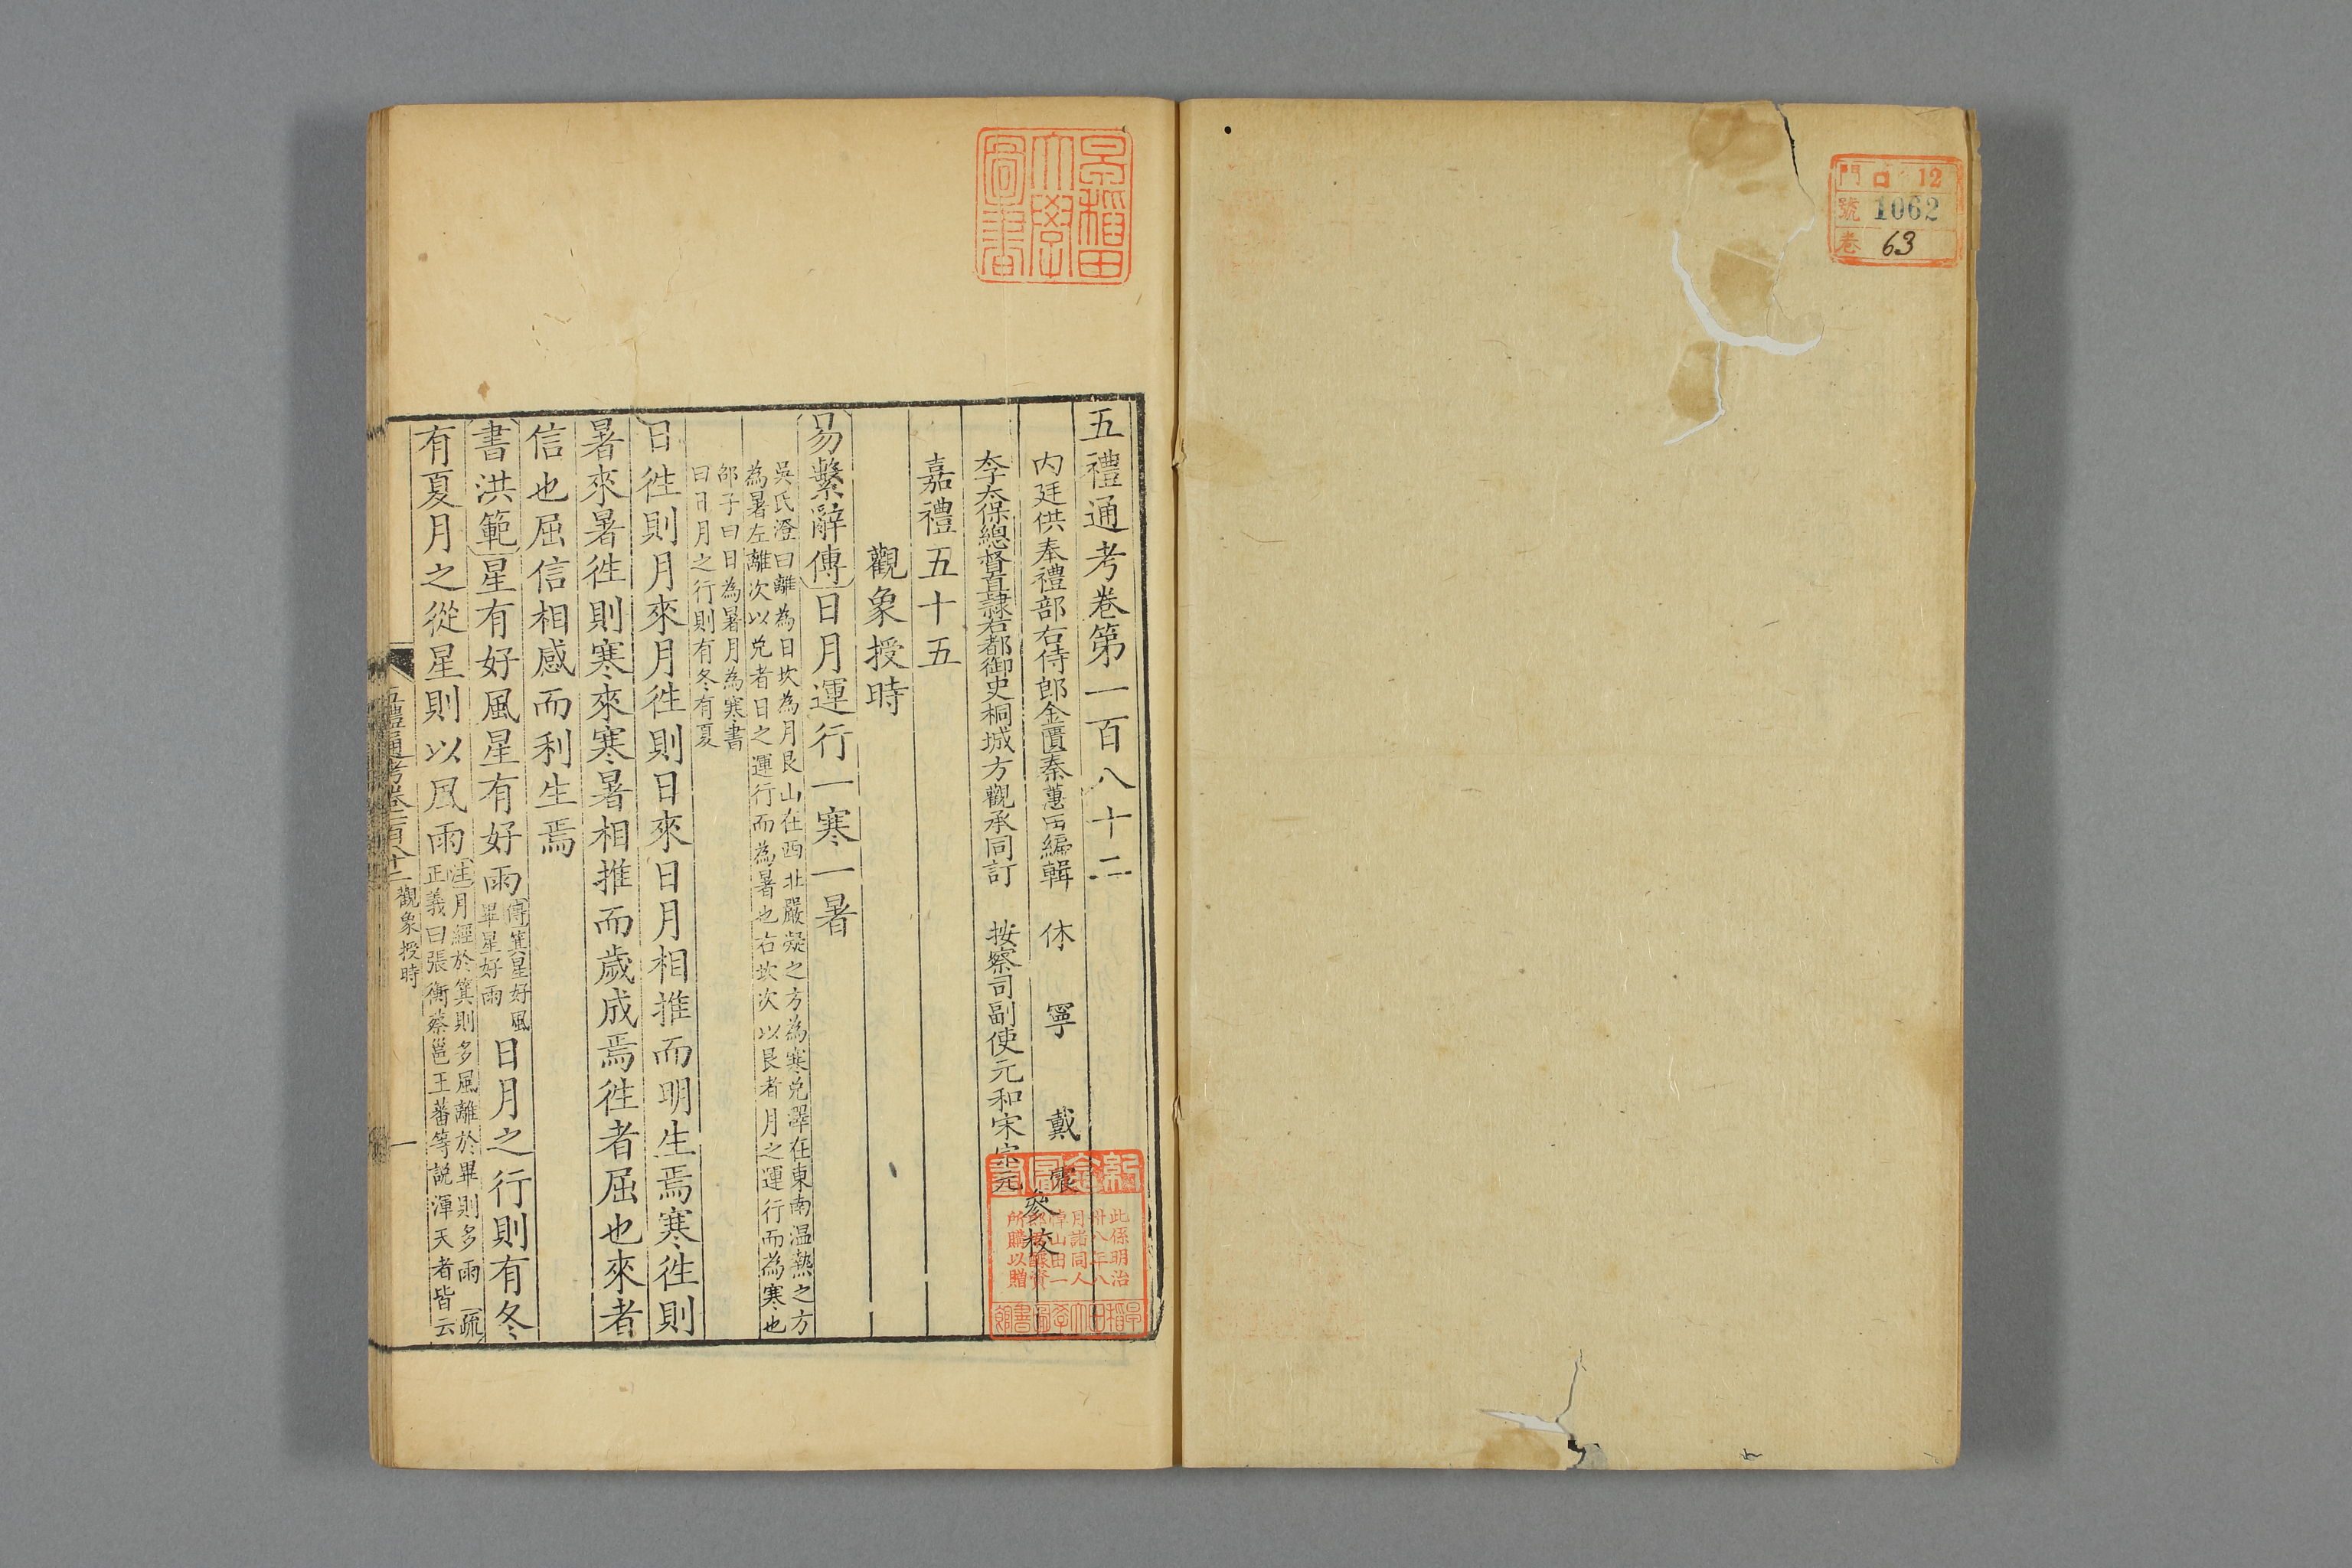 門 口 12
號 1062
卷 63
早稻田
大學
圖書
五禮通考卷第一百八十二
內廷供奉禮部右侍郎金匱秦蕙田編輯 休寧戴震
李太保總督直隸右都御史桐城方觀承同訂 按察司副使元和宋宗元 參校
嘉禮五十五
觀象授時
易繫辭傳日月運行一寒一暑
吳氏澄曰離為日坎為月艮山在西北嚴凝之方為寒兌澤在東南温熱之方
為暑左離次以兌者日之運行而為暑也右坎次以艮者月之運行而為寒也
邵子曰日為暑月為寒書
曰日月之行則有冬有夏
日徃則月來月徃則日來日月相推而明生焉寒徃則
暑來暑徃則寒來寒暑相推而歲成焉徃者屈也來者
信也屈信相感而利生焉
書洪範星有好風星有好雨傳箕星好風
畢星好雨日月之行則有冬
有夏月之從星則以風雨注月經於箕則多風離於畢則多雨 疏
正義曰張衡蔡邕王蕃等說渾天者皆云
五禮通考卷一百八十二 觀象授時 一
此係明治
卅八年八
月諸同人
所購以贈
早稻田大學圖書館